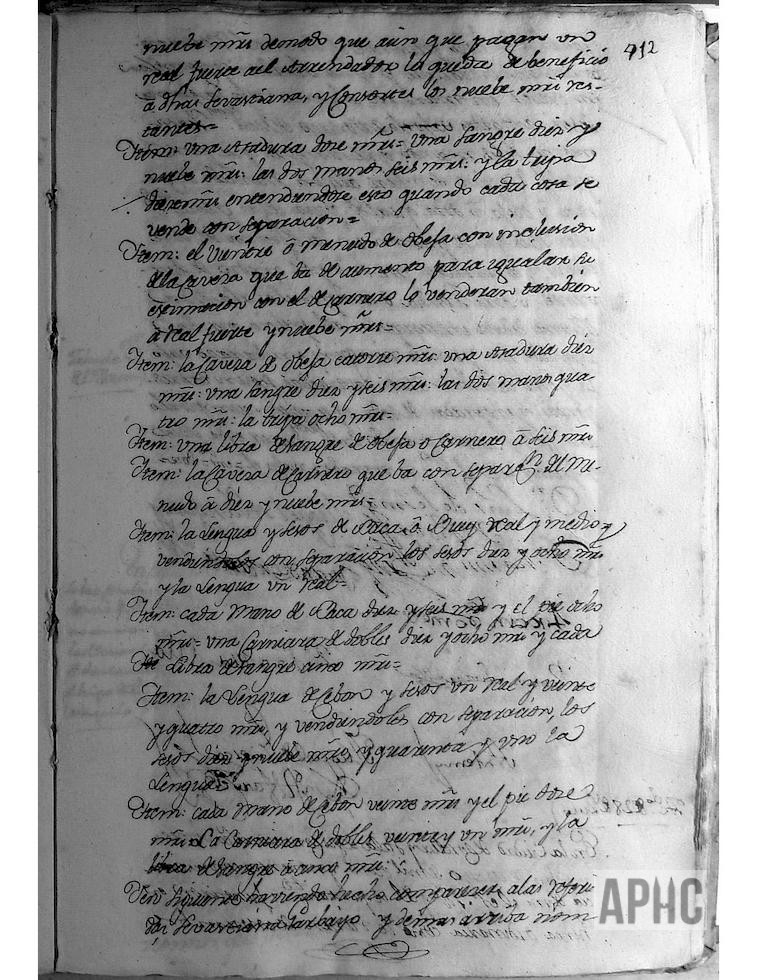 412
nuebe mrs demodo que aun que pagan un
real fuerte ael Arrendador la queda de beneficio
à dhas Sevastiana, y Consortes los nuebe mrs res-
tantes=
Item: una Asadura doze mrs= una Sangre diez y
nuebe mrs: las dos manos seis mrs: y la tripa
diez mrs entendiendose esto quando cada cosa se
vende con separacion=
Item: el Vientre ò menudo de Obeja con inclusion
dela Caveza que ba de aumento para igualar su
estimacion con el de Carnero lo venderan tambien
à real fuerte y nuebe mrs=
Item: la Caveza de Obeja catorze mrs: una Asadura diez
mrs: una Sangre diez y seis mrs: las dos manos qua-
tro mrs: la tripa ocho mrs=
Item: una libra de sangre de Obeja o Carnero à seis mrs
Item: la Caveza de Carnero que ba con separaon del Me-
nudo à diez y nuebe mrs=
Item: la Lengua y sesos de Baca, ò Buey real y medio y
vendiendolos con separacion los sesos diez y ocho mrs
y la Lengua un real=
Item: cada Mano de Baca diez y seis mrs y el pie ocho
mrs= una Carniara de dobles diez y ocho mrs y cada
Libra de sangre cinco mrs=
Item: la Lengua de Cebon y sesos un real y veinte
y quatro mrs, y vendiendoles con separación, los
sesos diez y nuebe mrs y quarenta y uno la
Lengua=
Item: cada Mano de Cebon veinte mrs y el pie doze
mrs La Carniara de dobles veinte y un mrs, y la
libra de sangre à cinco mrs=
haviendo hecho comparecer alas referi-
das Sevastiana Carbayo y demas arriva nom-
APHC